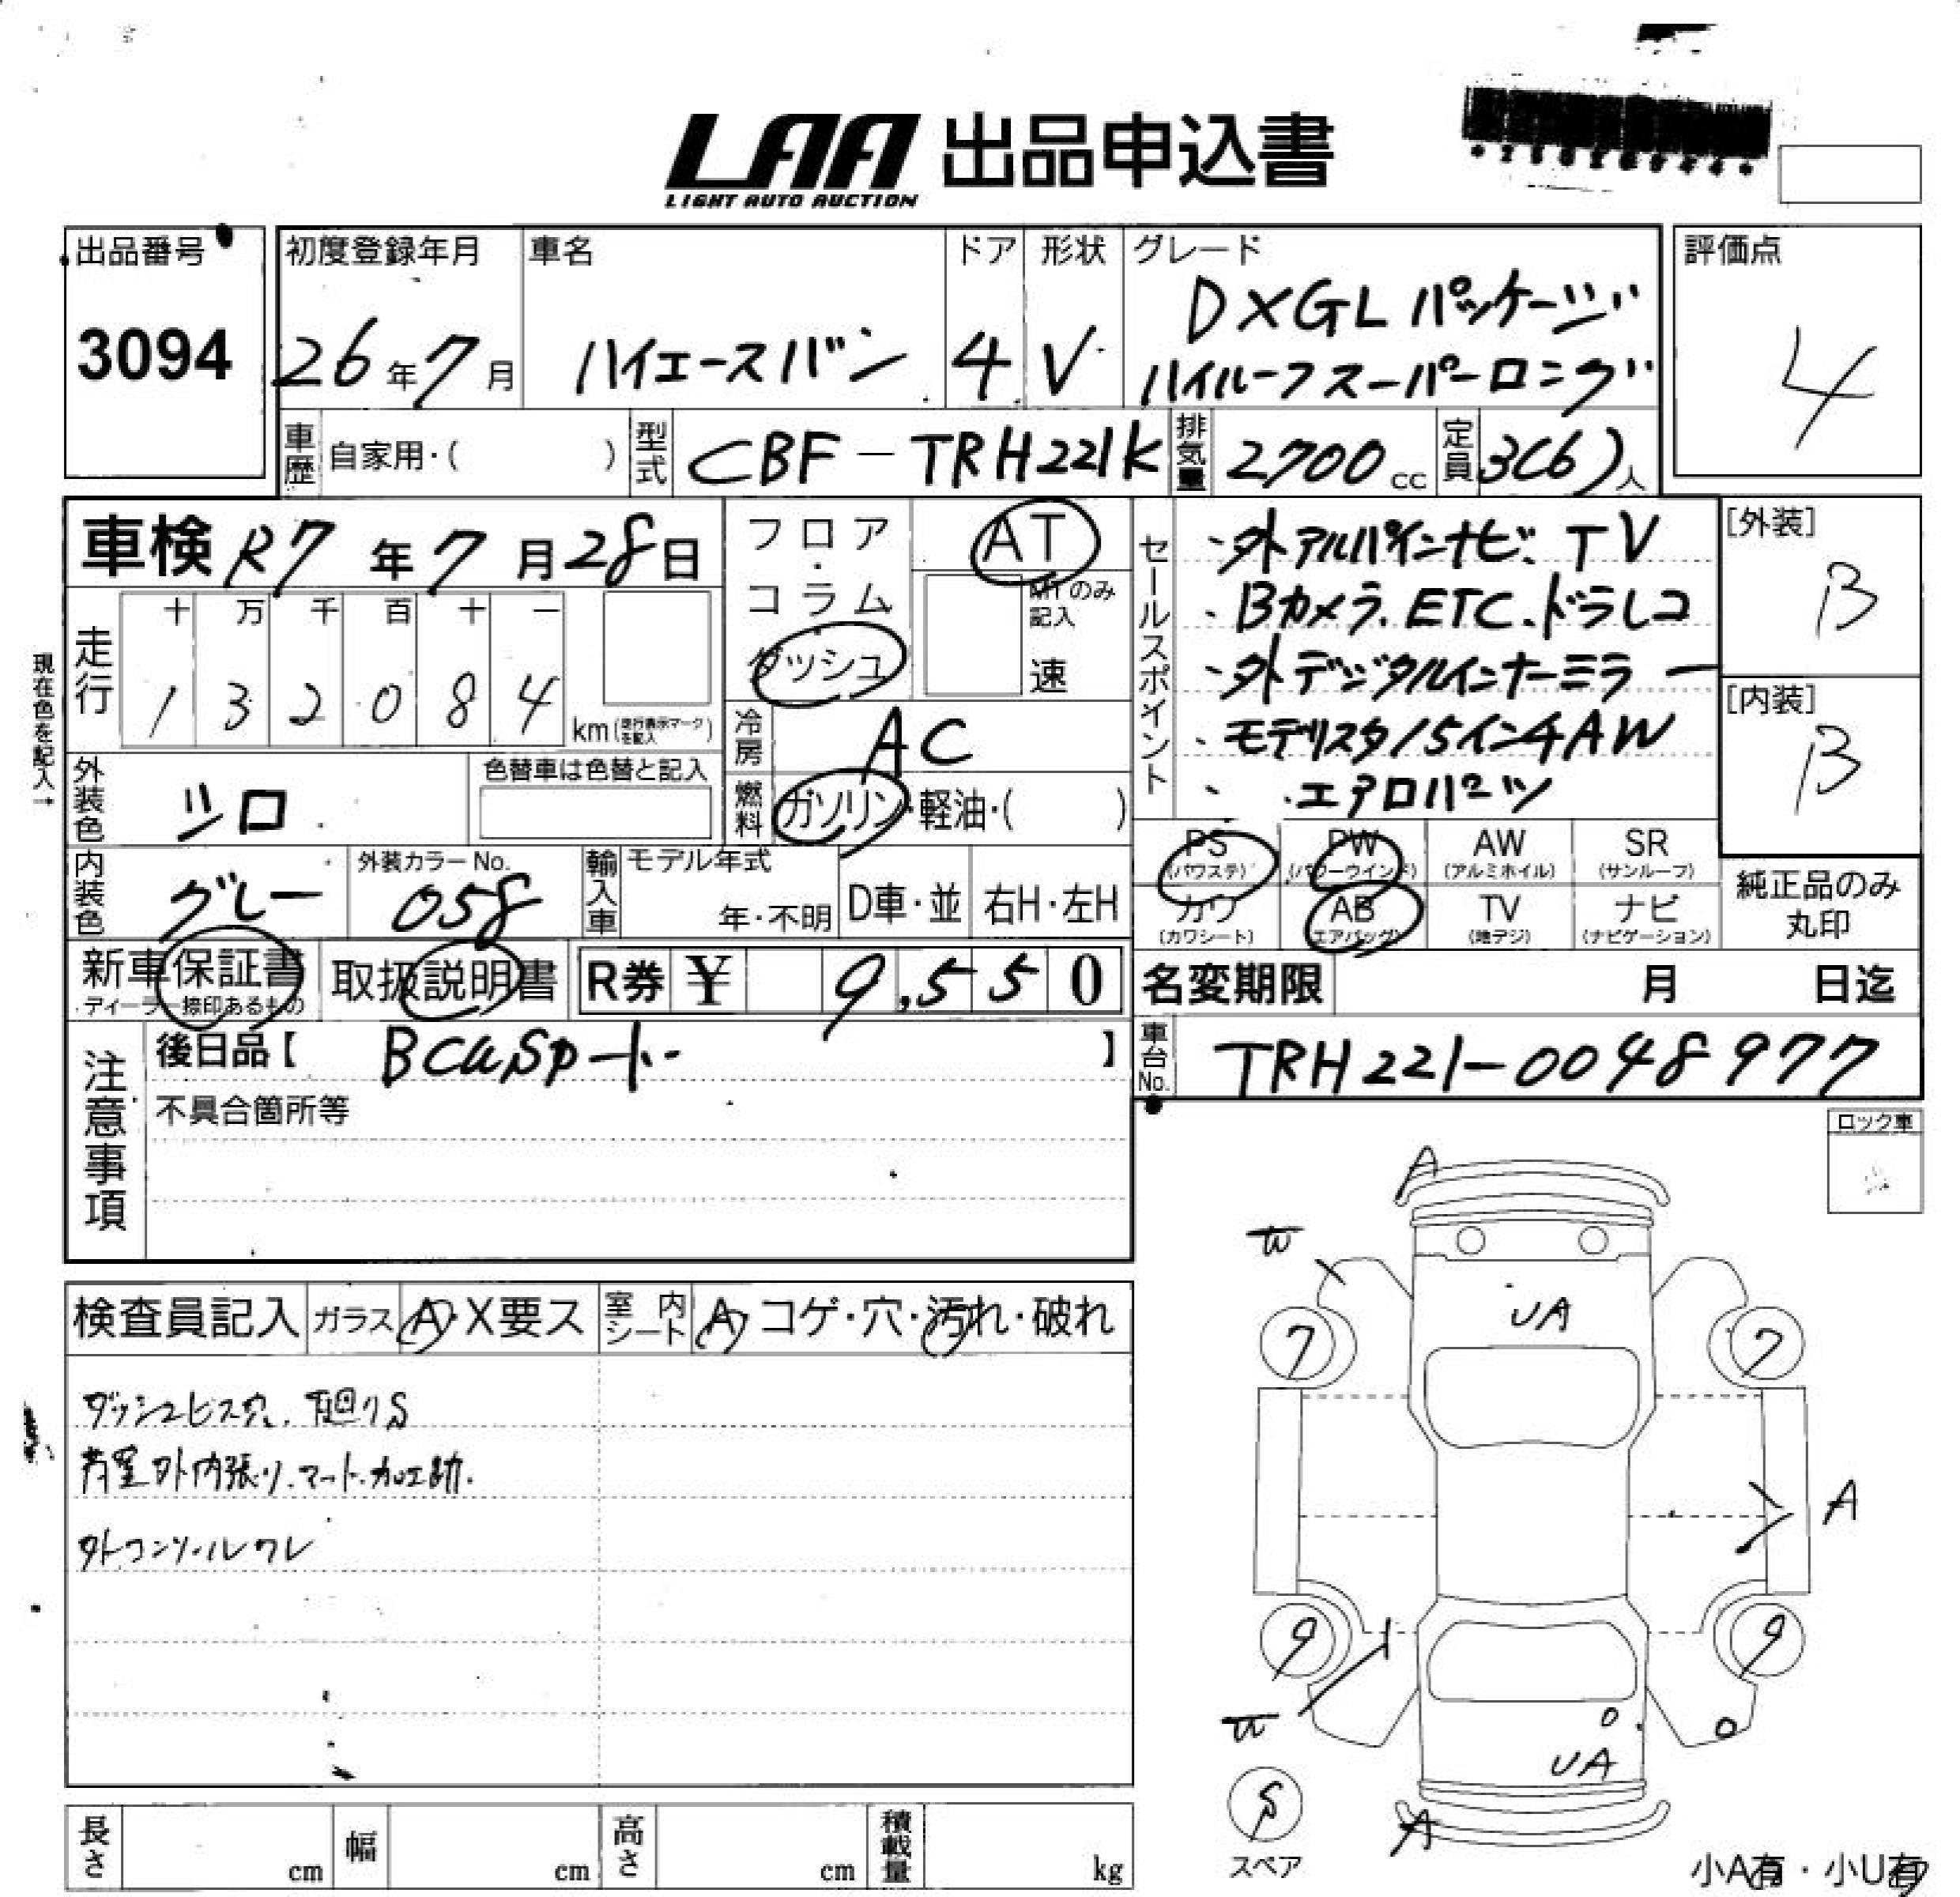 LAA 出品申込書
LIGHT AUTO AUCTION
出品番号
3094
初度登録年月
26年7月
車名
ハイエースバン
ドア
4
形状
V
グレード
DXGLパッケージ
ハイルーフスーパーロング
評価点
4
車歴 自家用・( )
型式 CBF-TRH221K
排気量 2700cc
定員 3(6)人
車検 R7年7月28日
フロア・コラム・ダッシュ
AT
MTのみ記入
速
セールスポイント
・外アルパインナビ、TV
・Bカメラ、ETC、ドラレコ
・外デジタルインナーミラー
・モデリスタ15インチAW
・エアロパーツ
[外装]
B
[内装]
B
現在色を記入→
走行 十 万 千 百 十 一
1 3 2 0 8 4 km(走行表示マークを記入)
冷房 AC
外装色 シロ
色替車は色替と記入
燃料 ガソリン・軽油・( )
PS (パワステ)
PW (パワーウインド)
AW (アルミホイル)
SR (サンルーフ)
カワ (カワシート)
AB (エアバッグ)
TV (地デジ)
ナビ (ナビゲーション)
純正品のみ
丸印
内装色 グレー
外装カラーNo.
058
輸入車 モデル年式
年・不明
D車・並
右H・左H
新車保証書
・ディーラー捺印あるもの
取扱説明書
R券 ¥ 9,550
名変期限 月 日迄
注意事項
後日品【 BCasカード 】
不具合箇所等
車台No. TRH221-0048977
ロック車
検査員記入
ガラス A・X要ス
室内シート A・コゲ・穴・汚れ・破れ
ダッシュビス穴、下廻りS
荷室外内張り、マット、加工跡、
外コンソールワレ
A
W
UA
7
7
A
9
9
W
UA
A
S
スペア
長さ cm
幅 cm
高さ cm
積載量 kg
小A有・小U有